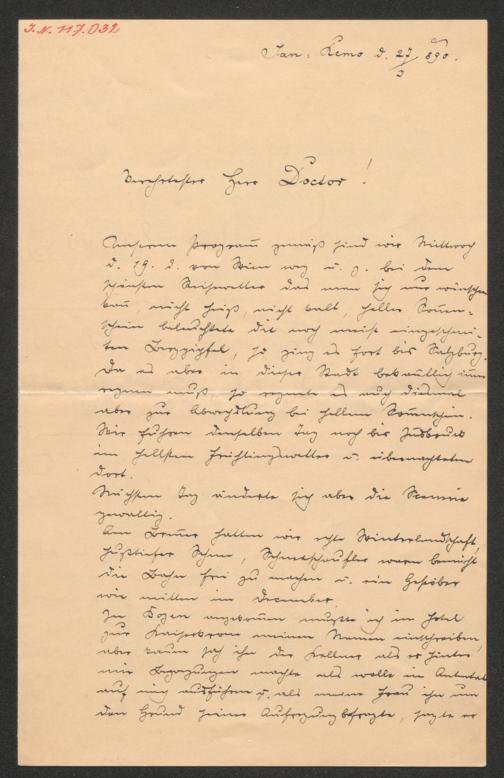 J.N. 117.032
San-Remo d. 27/3 890.
Verehrtester Herr Doctor!
Unserem Programm gemäß sind wir Mittwoch
d. 19. d. von Wien weg u. z. bei dem
schönsten Reisewetter das man sich nur wünschen
kann, nicht heiß, nicht kalt, heller Sonnen-
schein beleuchtete die noch meist eingeschnei-
ten Bergzipfel, so ging es fort bis Salzburg.
Da es aber in dieser Stadt bekanntlich immer
regnen muß, so regnete es auch diesmal
aber zur Abwechslung bei hellem Sonnenschein.
Wir fuhren denselben Tag noch bis Insbruck
im hellsten Frühlingswetter u. übernachteten
dort.
Nächsten Tag änderte sich aber die Scenerie
gewaltig.
Am Brenner hatten wir echte Winterlandschaft,
fußtiefer Schnee, Schneeschaufler waren bemüht
die Bahn frei zu machen u. ein Gestöber
wie mitten im December.
In Bozen angekommen mußte ich im Hotel
zur Kaiserkrone meinen Namen einschreiben,
aber kaum sah ihn der Kellner als er hinter
mir Bewegungen machte als wolle er ein Attentat
auf mich ausführen u. als meine Frau ihn um
den Grund seiner Aufregung befragte, sagte er